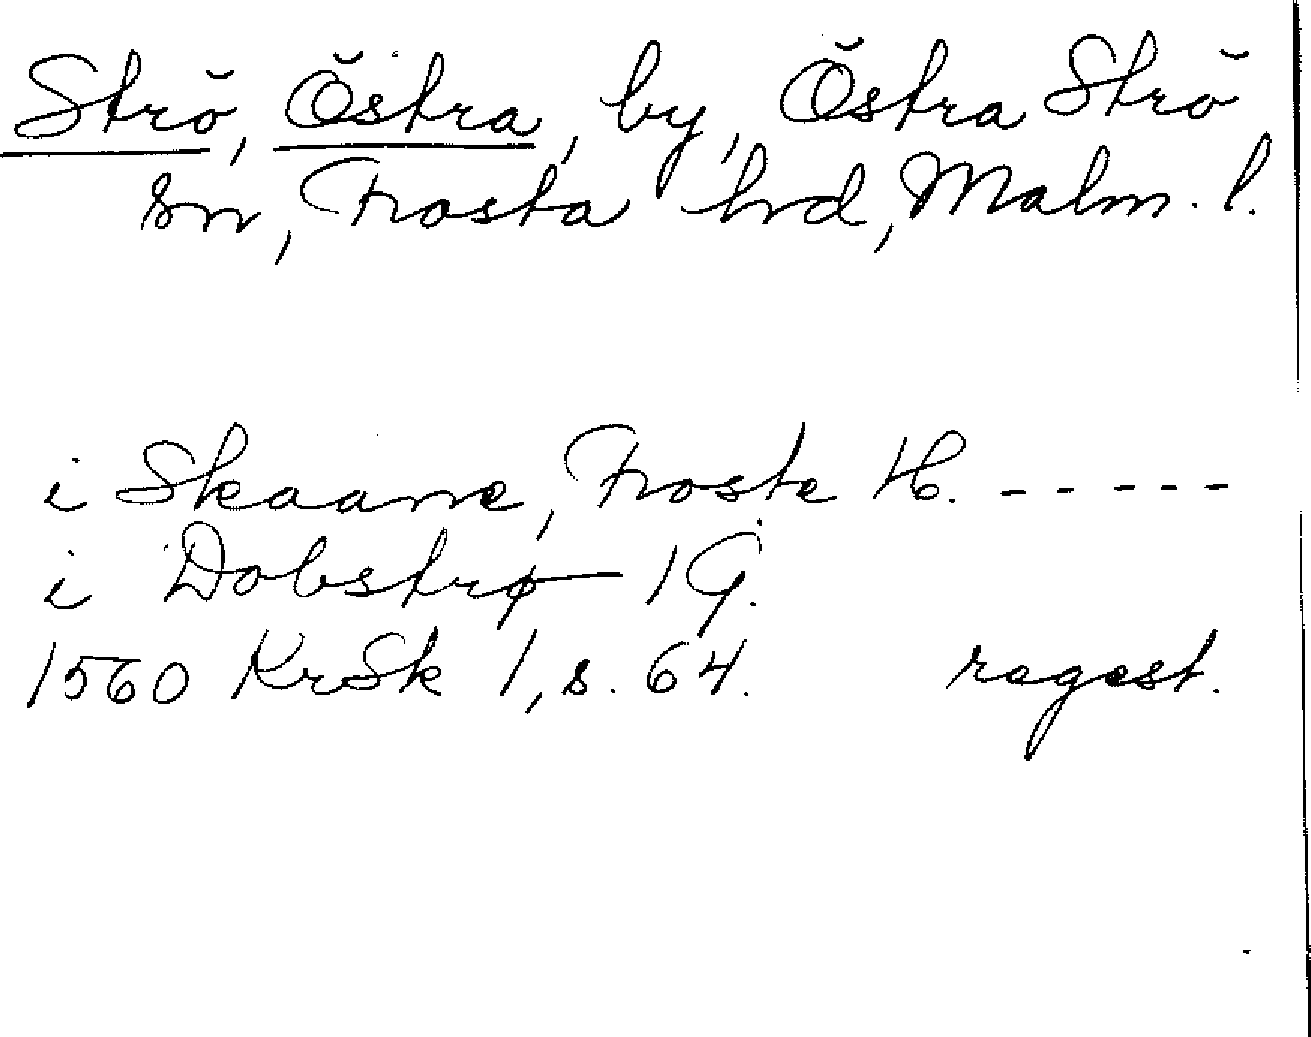 Strö, Östra, by, Östra Strö
sn, Frosta hrd, Malm. l.
i Skaane, Froste H. - - - - -
i Dobstrø 1 G.
1560 KrSk 1, s. 64. regest.